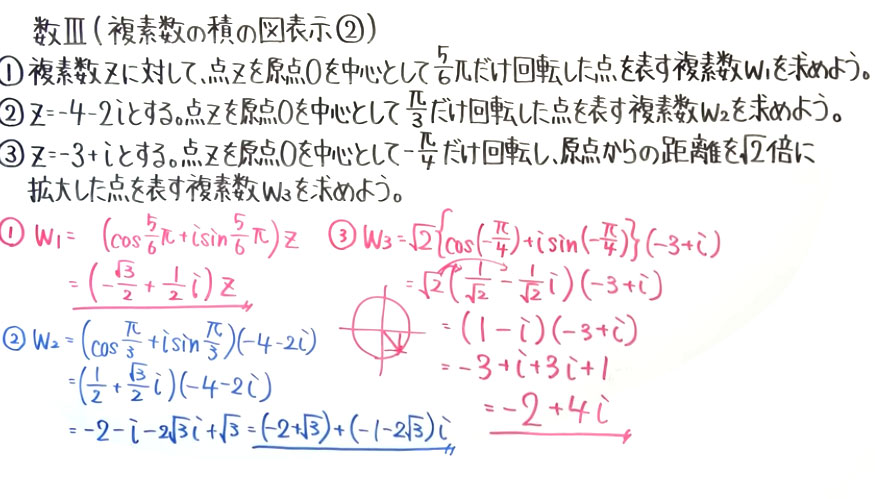 数Ⅲ(複素数の積の図表示②)
①複素数zに対して、点zを原点Oを中心として5/6πだけ回転した点を表す複素数W₁を求めよう。
②z=-4-2iとする。点zを原点Oを中心としてπ/3だけ回転した点を表す複素数W₂を求めよう。
③z=-3+iとする。点zを原点Oを中心として-π/4だけ回転し、原点からの距離を√2倍に
拡大した点を表す複素数W₃を求めよう。
① W₁= (cos5/6π+isin5/6π)z
=(-√3/2+1/2i)z
② W₂=(cosπ/3+isinπ/3)(-4-2i)
=(1/2+√3/2i)(-4-2i)
=-2-i-2√3i+√3=(-2+√3)+(-1-2√3)i
③ W₃=√2{cos(-π/4)+isin(-π/4)}(-3+i)
=√2(1/√2-1/√2i)(-3+i)
=(1-i)(-3+i)
=-3+i+3i+1
=-2+4i